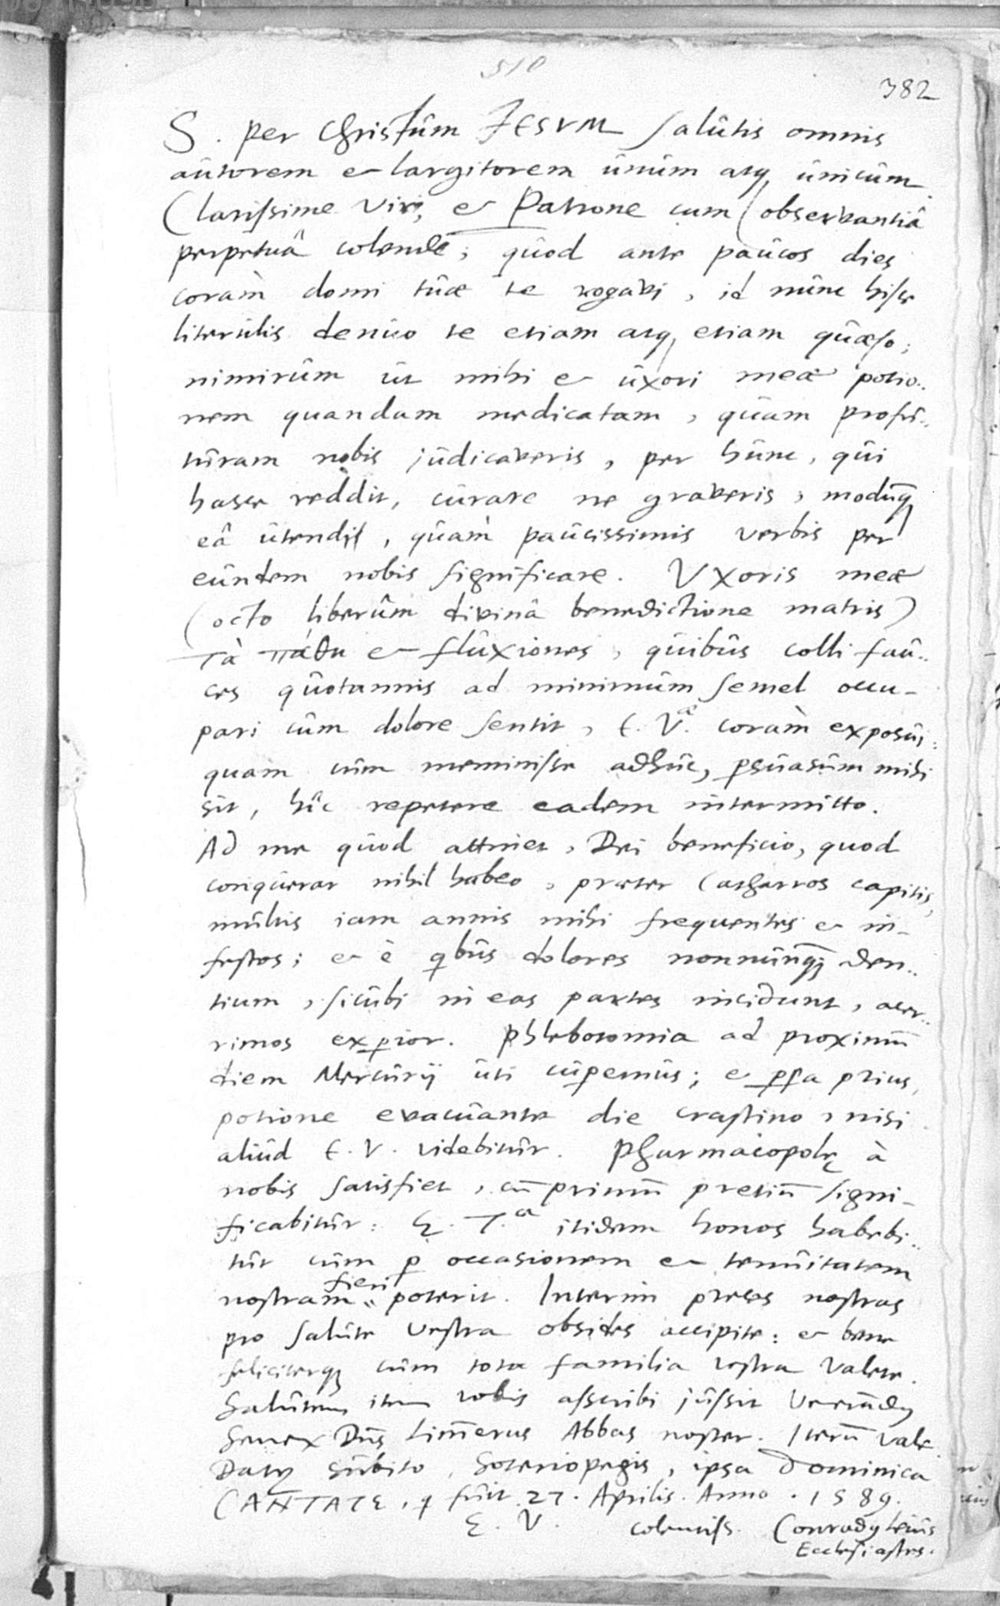 510
382
S. Per Christûm JESVM salûtis omnis
aûtorem et largitorem ûnûm atq ûnicûm.
Clarissime Vir, et Patrone cum observantiâ
perpetuâ colende; qûod ante paûcos dies
coràm domi tûæ te rogavi, id nûnc hisce
literûlis denûo te etiam atq etiam qûæso;
nimirûm ût mihi et ûxori meæ potio..
nem quandam medicatam, qûam profû..
tûram nobis jûdicaveris, per hûnc, qûi
hasce reddit, cûrare ne graveris, modûq
eâ ûtendi, qûàm paûcissimis verbis per
eûndem nobis significare. Vxoris meæ
(octo liberûm divinâ benedictione matris)
τὰ πάθη et flûxiones, qûibûs colli faû..
ces qûotannis ad minimûm semel occu-
pari cûm dolore sentit, E. Væ. coràm exposûi:
quam cûm meminisse adhûc, psûasûm mihi
sit, hîc repetere eadem intermitto.
Ad me qûod attinet, Dei beneficio, quod
conqûerar nihil habeo, præter Catharros capitis,
mûltis iam annis mihi frequentes et in-
festos; et è qbûs dolores nonnûnq den..
tium, sicûbi in eas partes incidunt, acer..
rimos experior. Phlebotomia ad proximû
diem Mercûrij ûti cûpemûs; et psa priûs,
potione evacûante die crastino, nisi
aliûd E. V. videbitûr. Pharmacopolę à
nobis satisfiet, cû primû pretiû signi-
ficabitûr: E. T.æ itidem honos habebi..
tûr cûm p occasionem et tenûitatem
nostram fieri poterit. Interim preces nostras
pro salûte vestra obsides accipite: et bene
feliciterq cûm tota familia vestra valete.
Salûtem item vobis asscribi jûssit
Senex Dns Abbas noster. Iterû vale.
Datę sûbito, Soteriopegis, ipsa Dominica
CANTATE, q fûit 27. Aprilis. Anno. 1589.
E. V. colentiss. Conradq
Ecclesiastes.